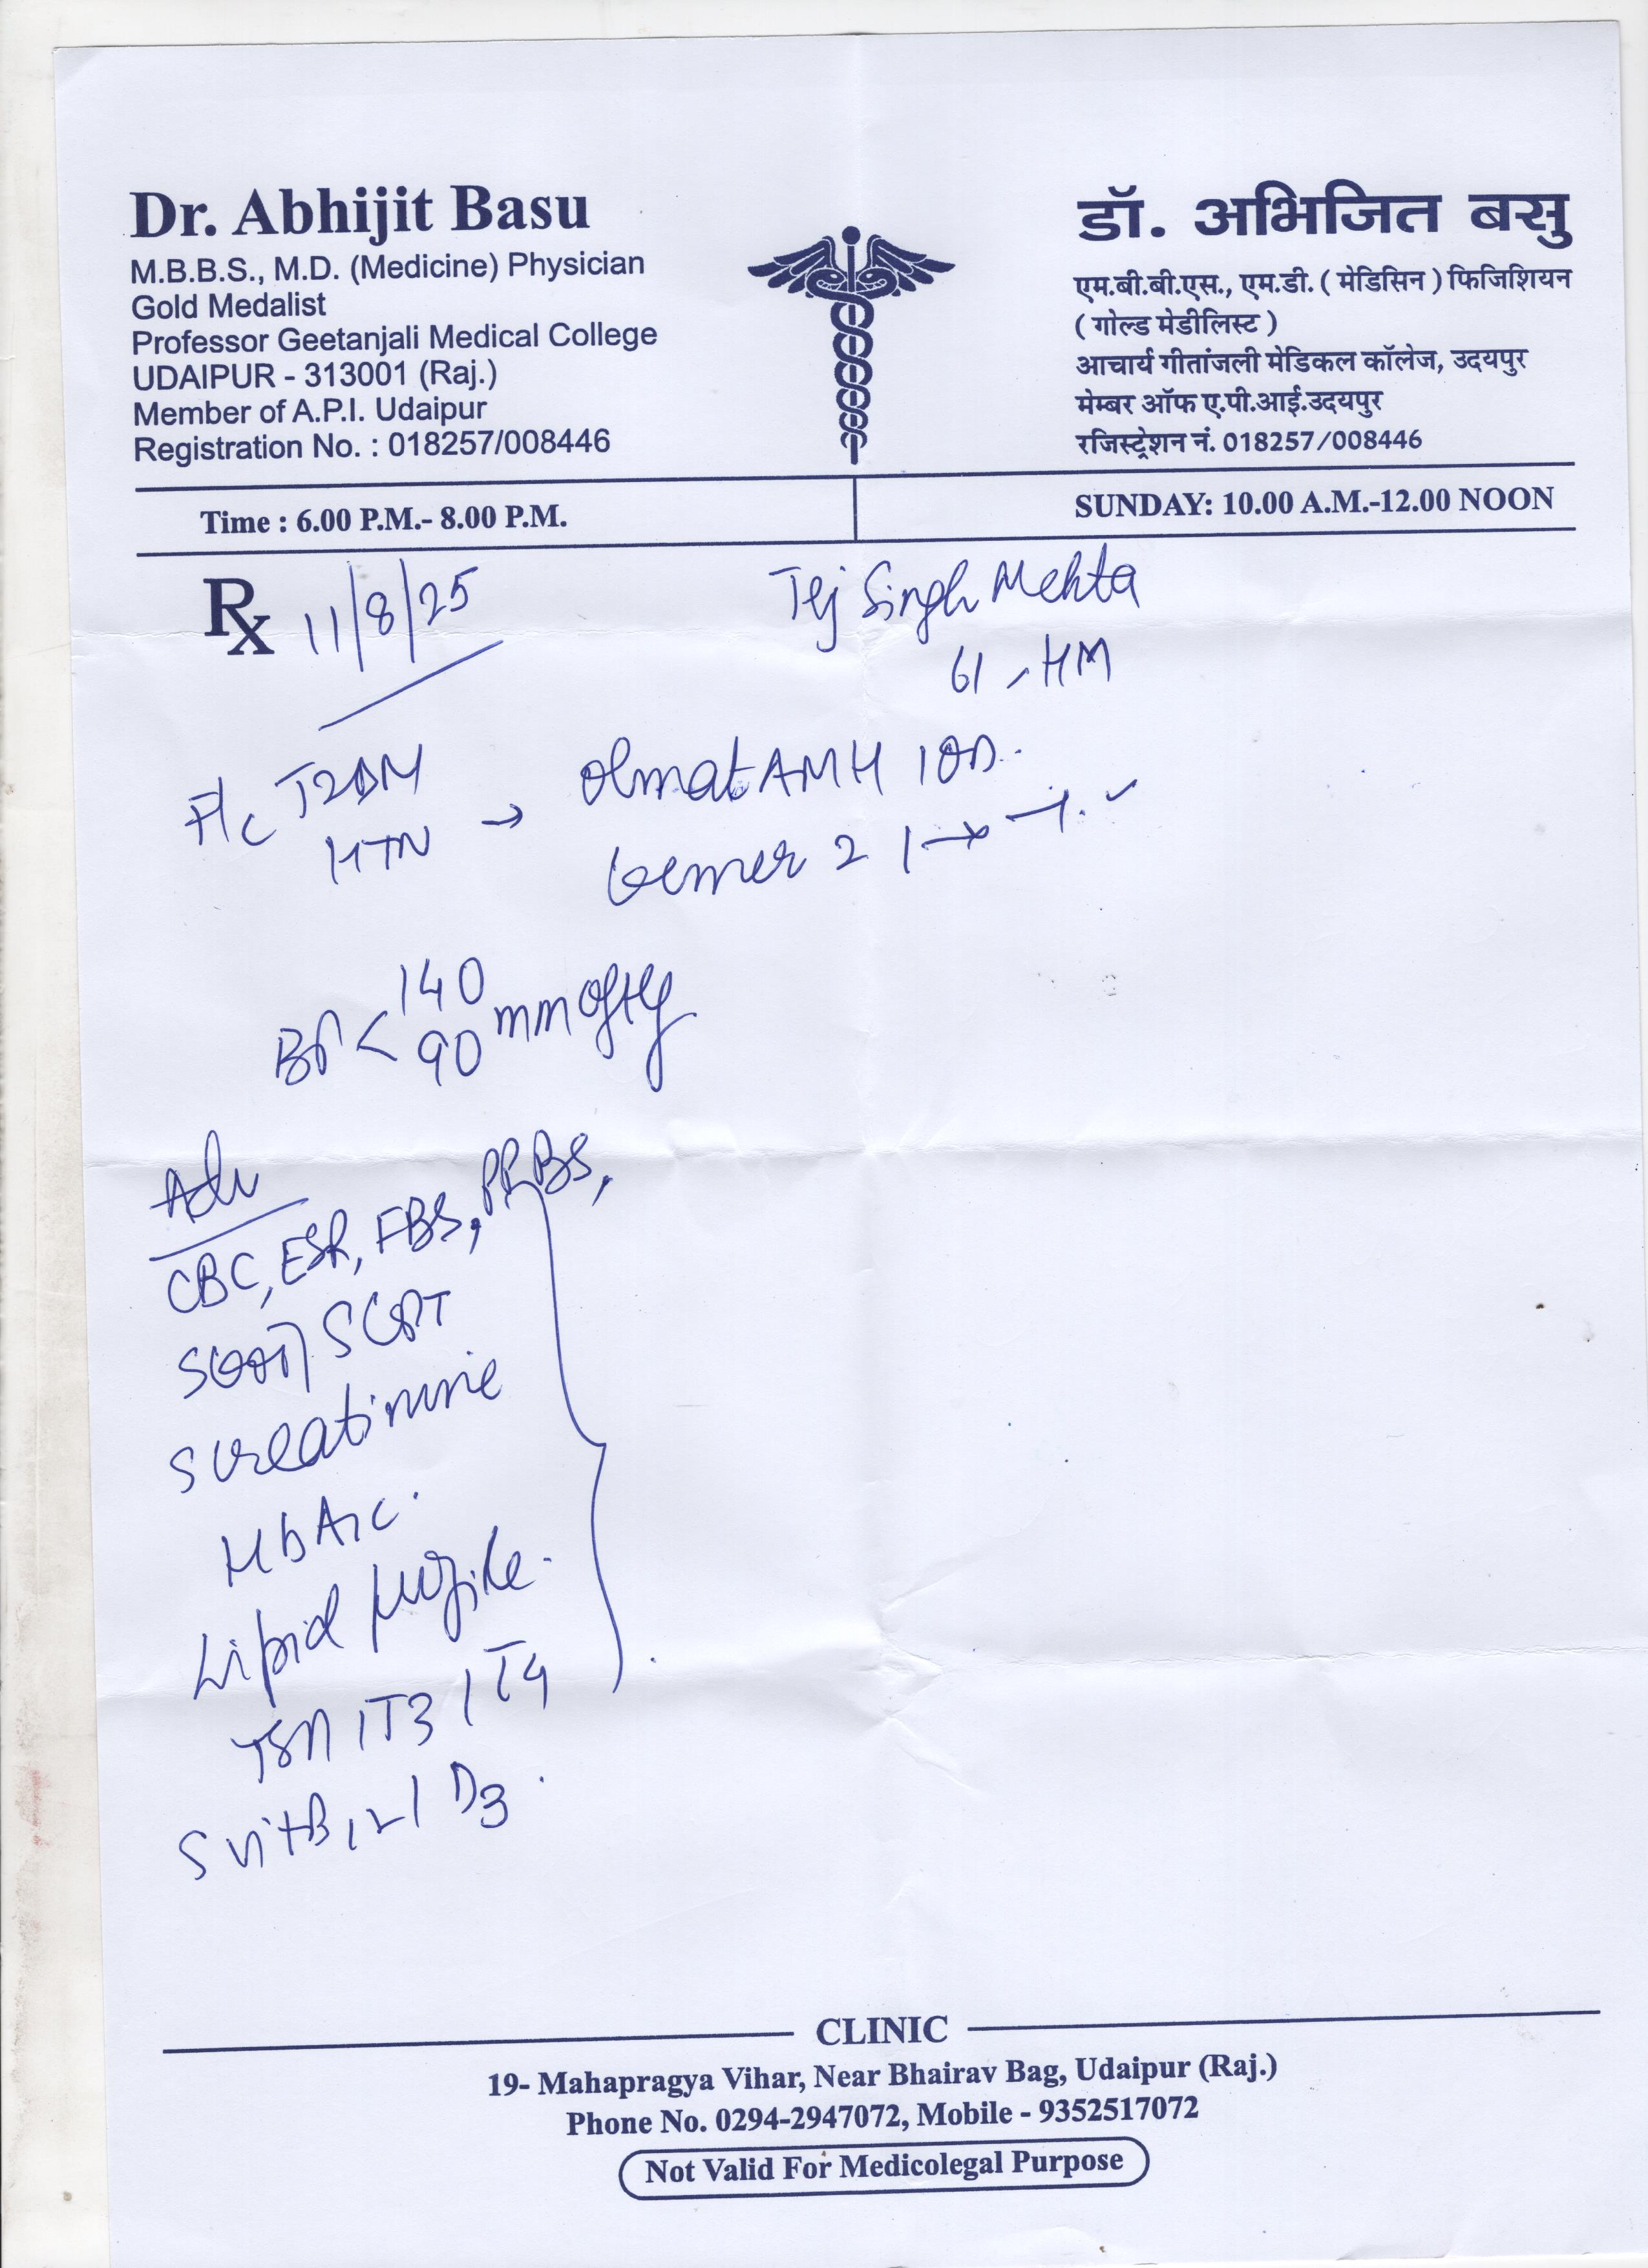 Dr. Abhijit Basu
M.B.B.S., M.D. (Medicine) Physician
Gold Medalist
Professor Geetanjali Medical College
UDAIPUR - 313001 (Raj.)
Member of A.P.I. Udaipur
Registration No. : 018257/008446
डॉ. अभिजित बसु
एम.बी.बी.एस., एम.डी. ( मेडिसिन ) फिजिशियन
( गोल्ड मेडीलिस्ट )
आचार्य गीतांजली मेडिकल कॉलेज, उदयपुर
मेम्बर ऑफ ए.पी.आई.उदयपुर
रजिस्ट्रेशन नं. 018257/008446
Time : 6.00 P.M.- 8.00 P.M.
SUNDAY: 10.00 A.M.-12.00 NOON
Rx 11/8/25
Tej Singh Mehta
61
T2DM
HTN →
Olmat AMH 1 OD.
Gemer 2 1
BP < 140
90 mm of Hg
Adv
CBC, ESR, FBS, PPBS,
SGOT/ SGPT
S creatinine
HbA1c.
Lipid profile.
TSH / T3 / T4
S Vit B12 / D3.
CLINIC
19- Mahapragya Vihar, Near Bhairav Bag, Udaipur (Raj.)
Phone No. 0294-2947072, Mobile - 9352517072
Not Valid For Medicolegal Purpose